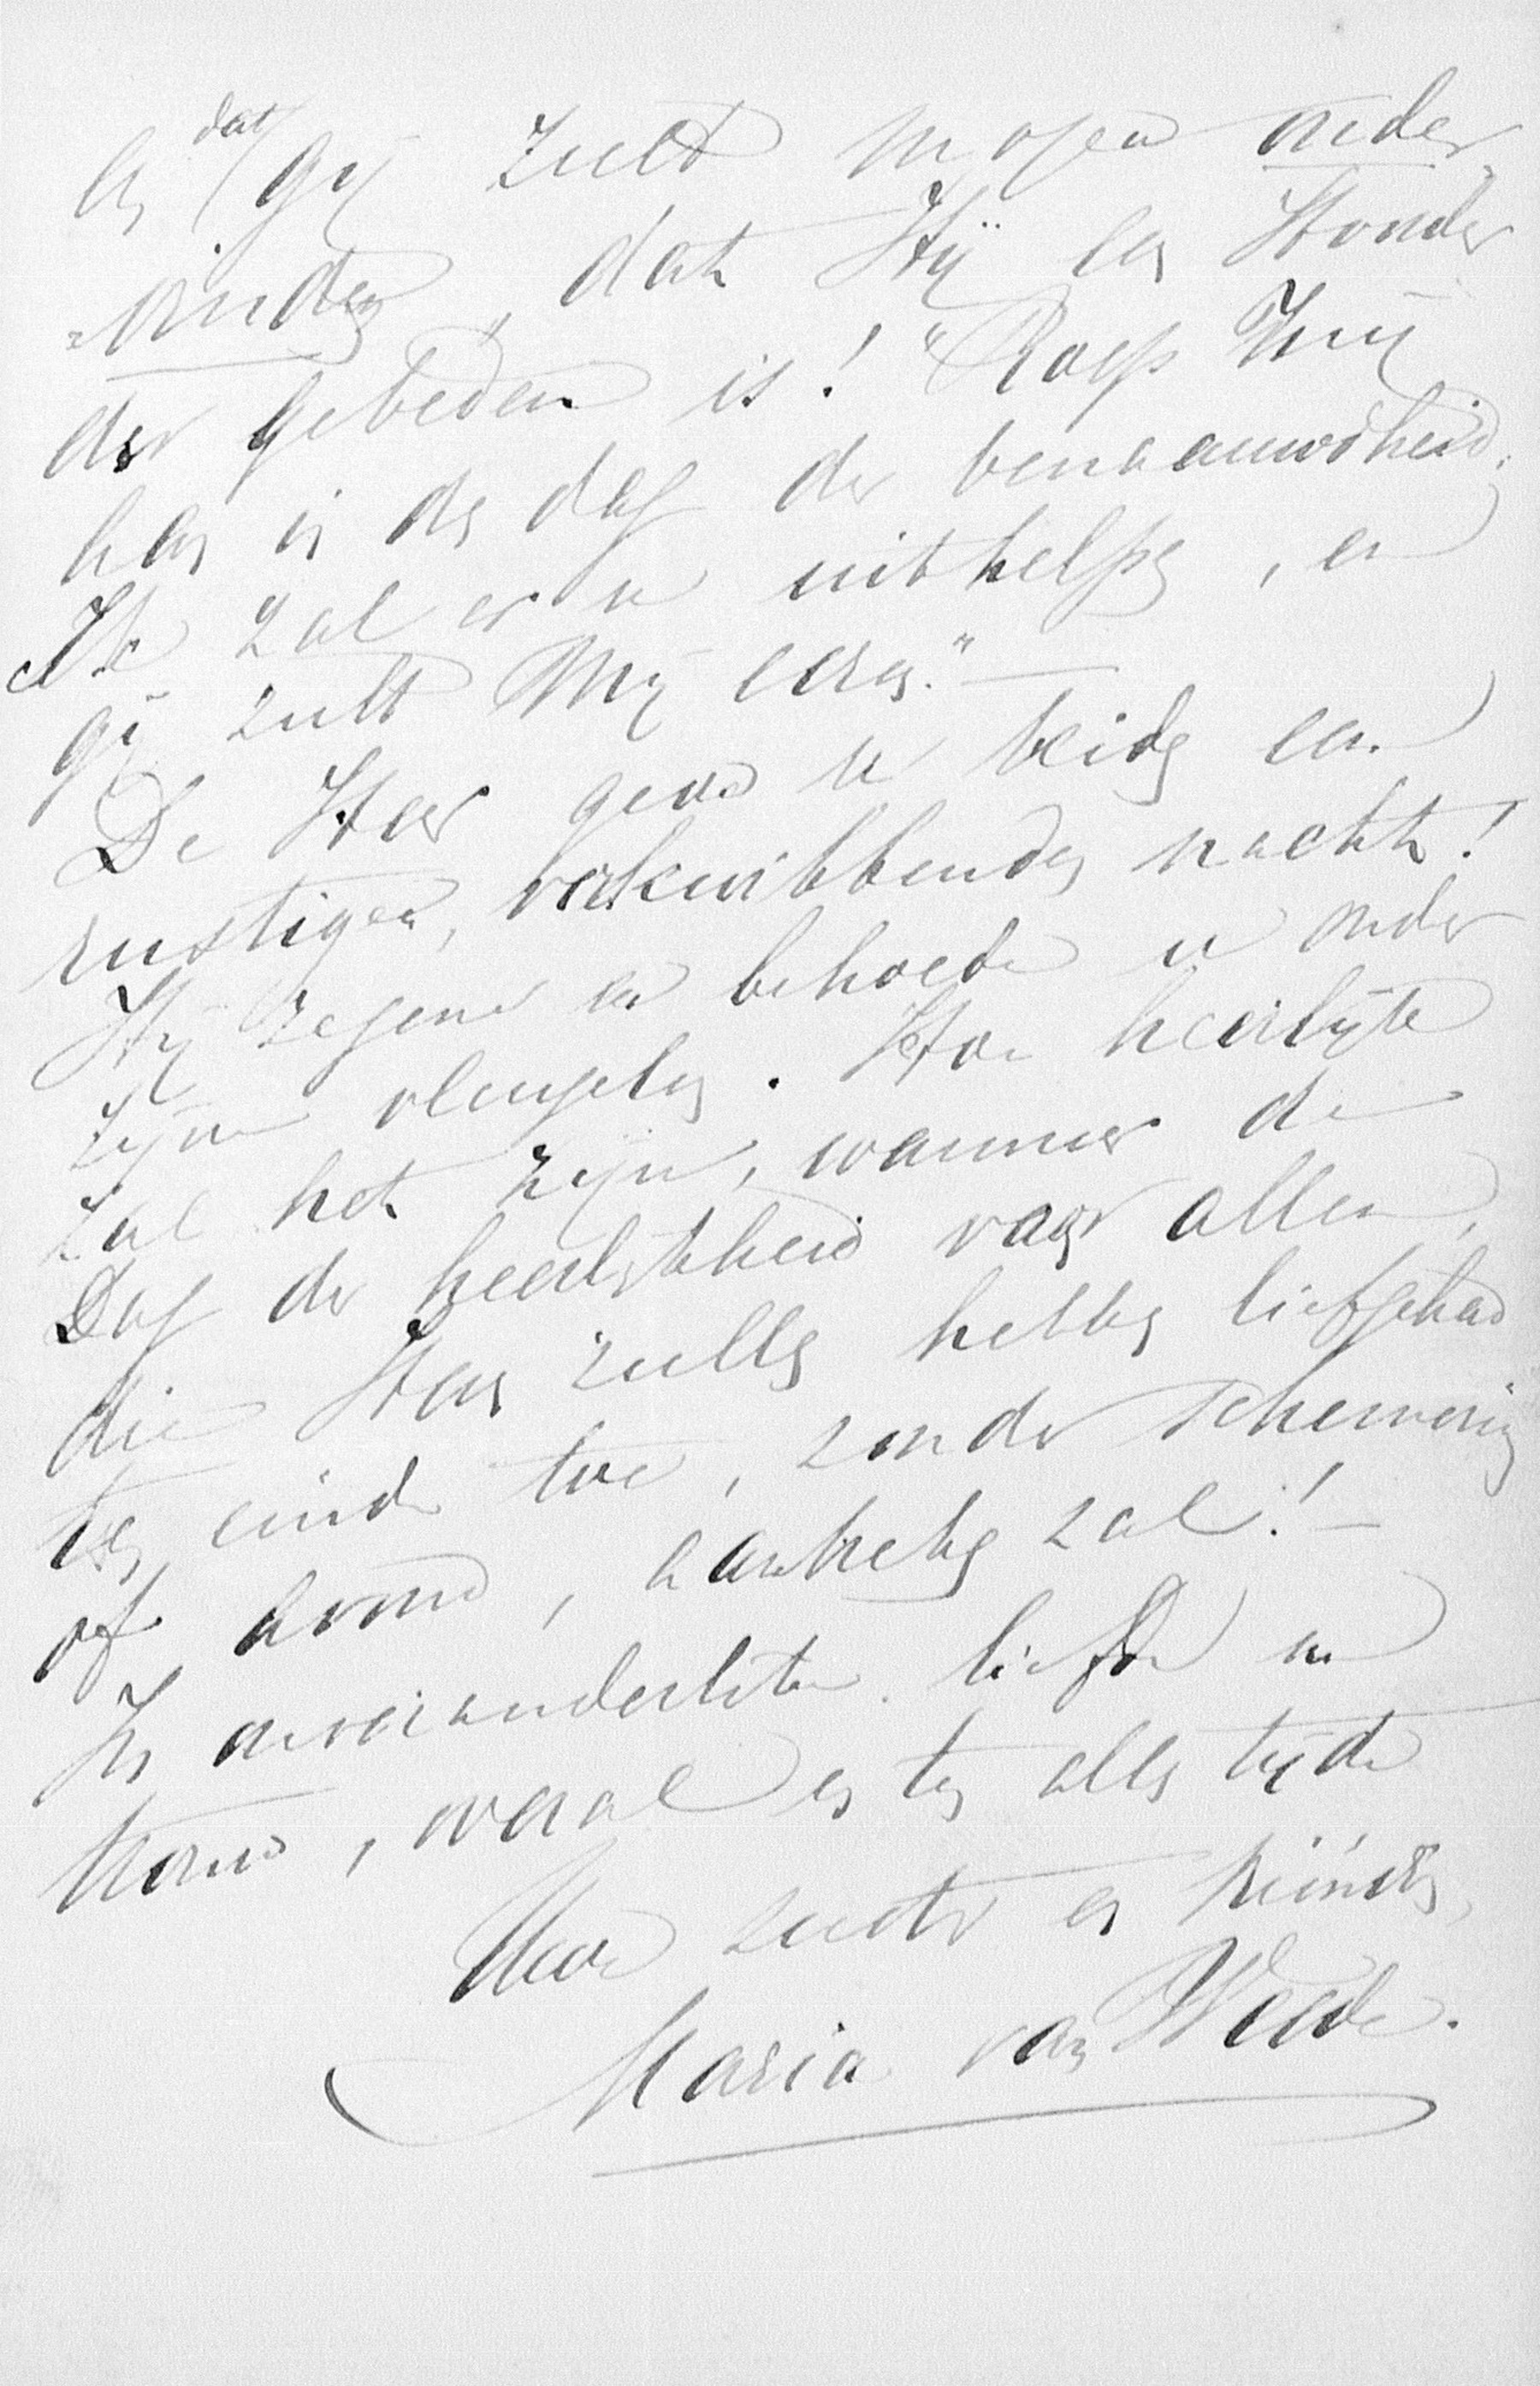 en dat gij zult mogen onder
=vinden, dat Hij een Hoorder
der gebeden is! "Roept Mij
aan in den dag der benaauwdheid;
Ik zal er u uithelpen, en
gij zult Mij eeren." —
De Heer geve u beiden een
rustigen, verkwikkenden nacht!
Hij zegene en behoede u onder
Zijne vleugelen. Hoe heerlijk
zal het zijn, wanneer de
Dag der heerlijkheid voor allen,
die Hem zullen hebben liefgehad
ten einde toe, zonder schemering
of avond, aanbreken zal! —
In onveranderlijke liefde en
trouw, overal en ten allen tijde
Uwe zuster en vriendin,
Maria van Weede.